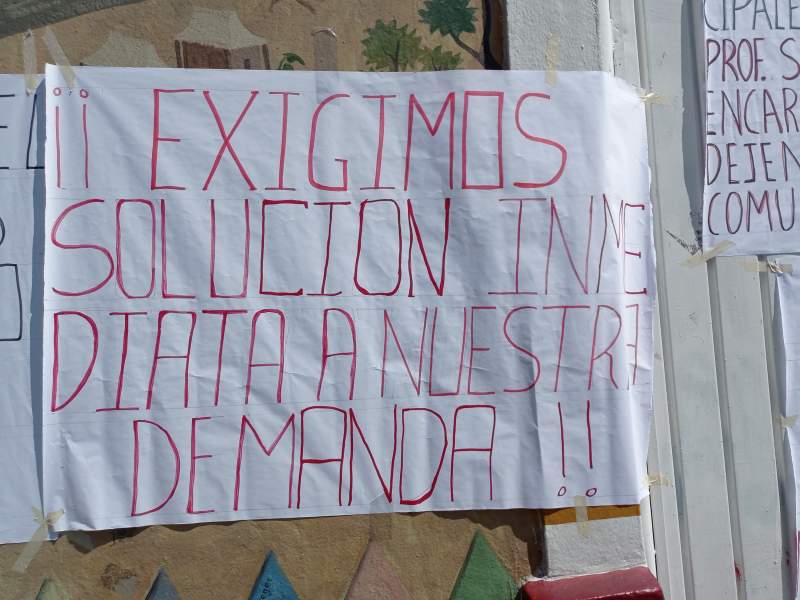 ¡¡ EXIGIMOS
SOLUCION INME
DIATA A NUESTRA
DEMANDA !!
PROF. S
ENCAR
DEJEN
COMU